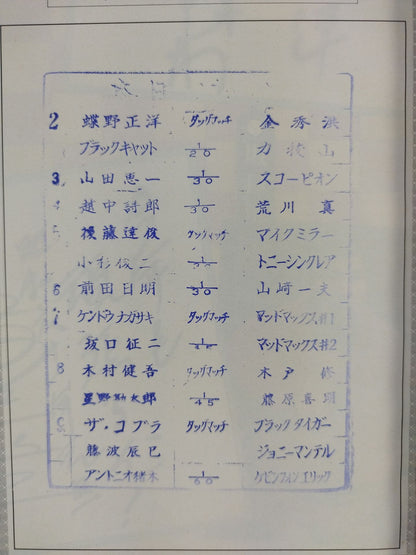 2 蝶野正洋 タッグマッチ 金秀洪
ブラックキャット 1/20 力抜山
3 山田恵一 1/30 スコーピオン
4 越中詩郎 1/30 荒川真
5 後藤達俊 タッグマッチ マイクミラー
小杉俊二 トニーシンクレア
6 前田日明 1/30 山﨑一夫
7 ケンドウナガサキ タッグマッチ マッドマックス#1
坂口征二 1/45 マッドマックス#2
8 木村健吾 タッグマッチ 木戸修
星野勘太郎 1/45 藤原喜明
9 ザ・コブラ タッグマッチ ブラックタイガー
藤波辰巳 ジョニーマンテル
アントニオ猪木 1/60 ケビンフォンエリック